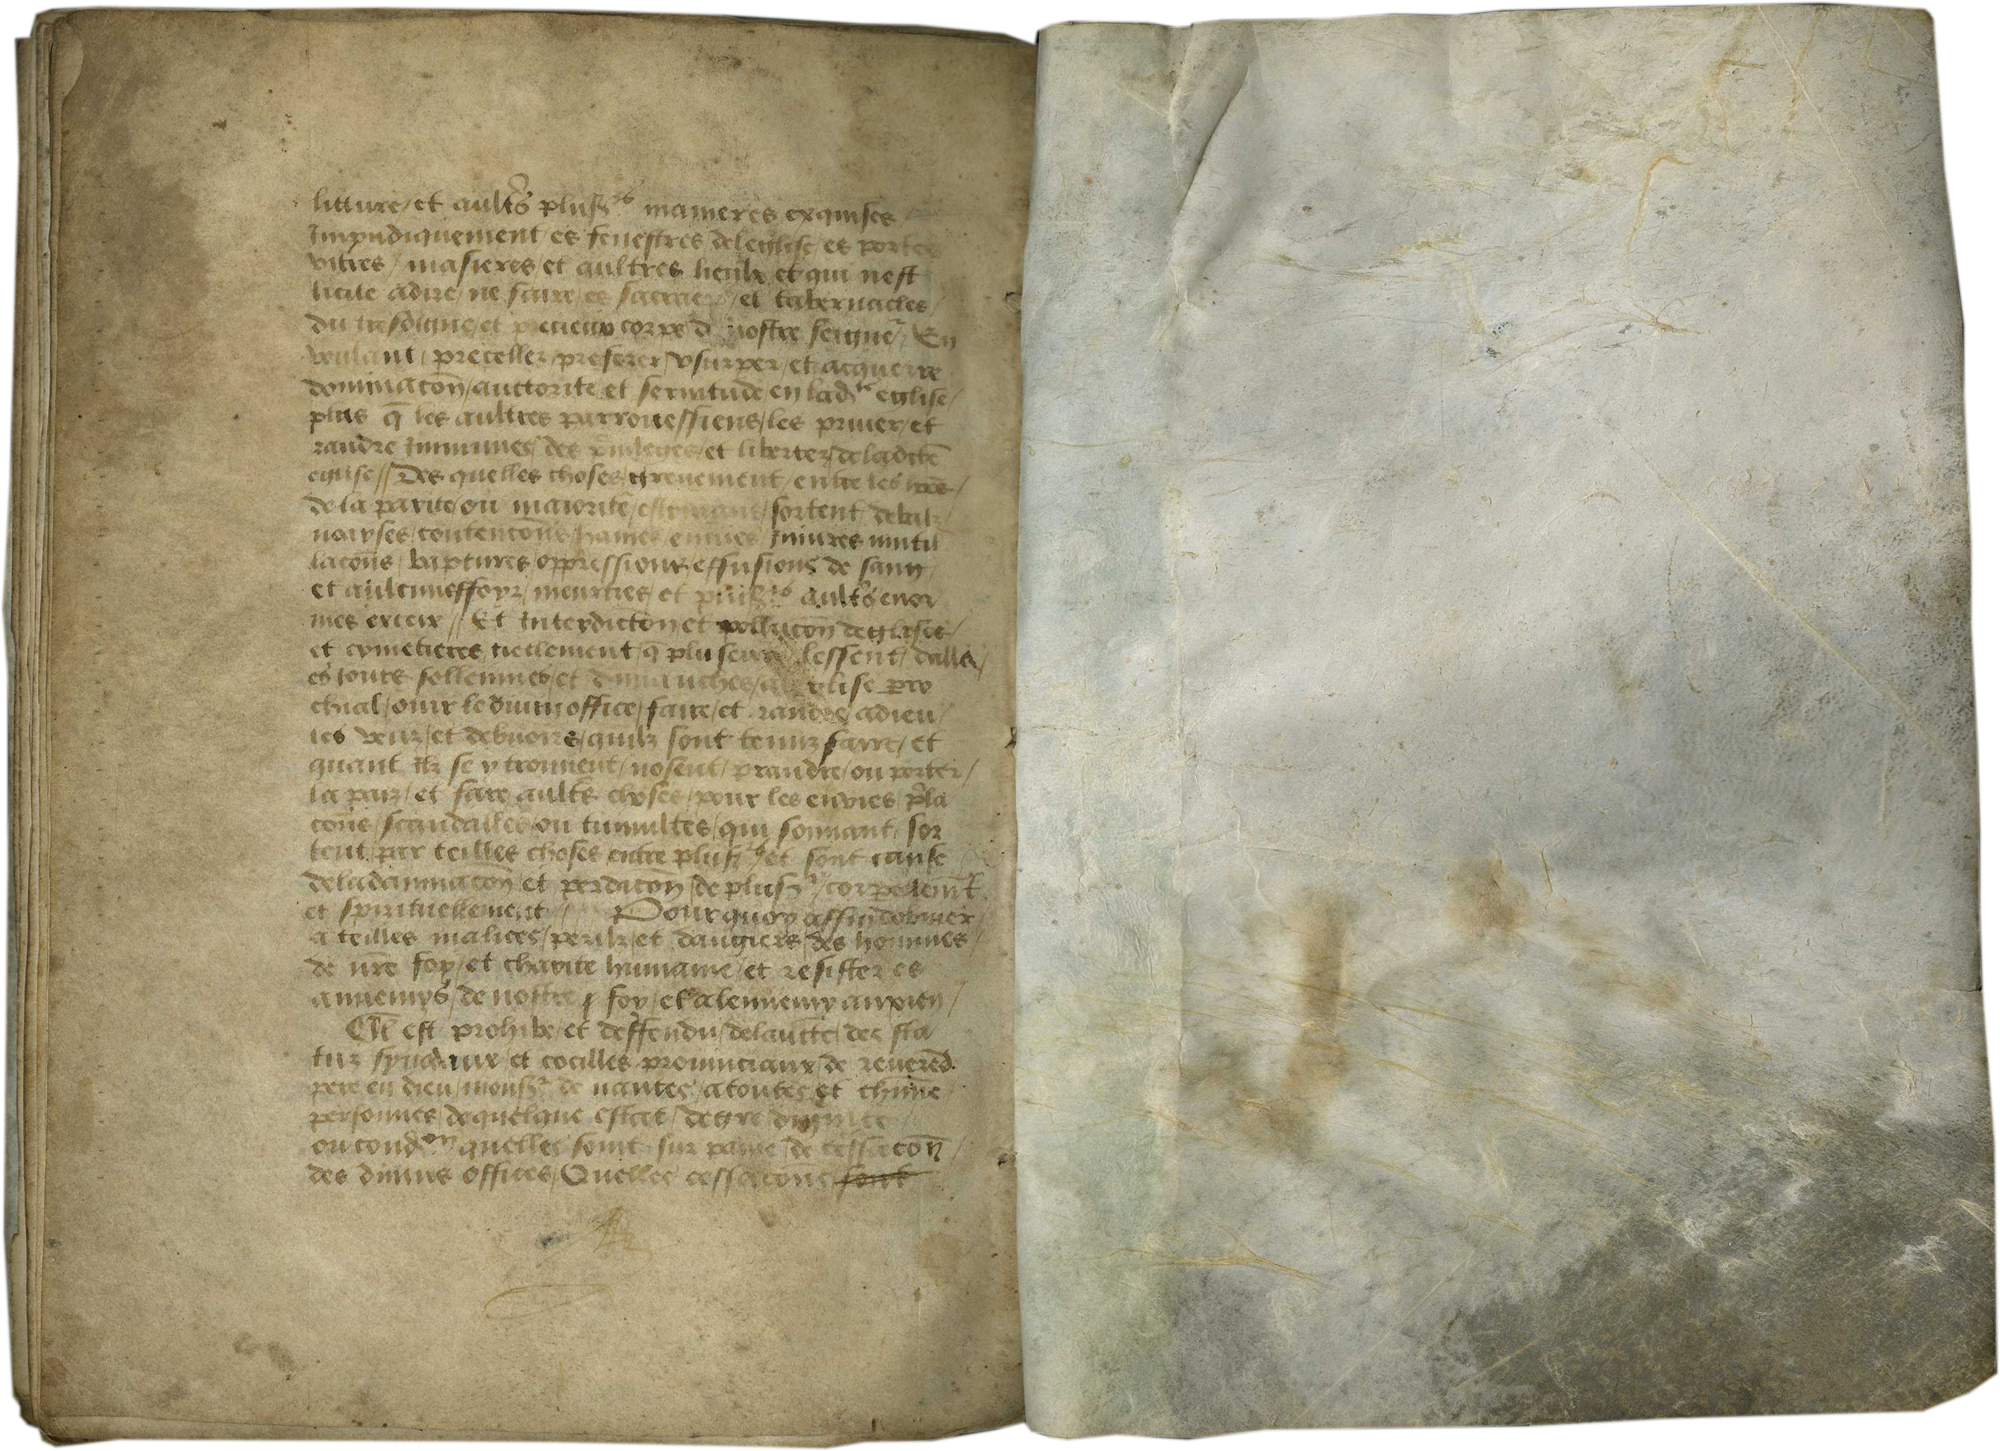 litture / etault͛s pluss͛ʳˢ manieres exquises
Impudiquement / es fenestres deleglise / es portes
vitres / masieres / et aultres lieulx et qui nest
licite adire / ne faire / es / et tabernacles /
du tresdigne / et precieux corps d nostre seigne͛ / En
voulant / preceller / preferer / vsurper / et acquerre
dominacoñ / auctorite / et seruitude / en ladᵗᵉ eglise /
plus q̄ les aultres parrouessiens / les priuer / et
randre Immunes / des preuileges / et libertez / deladictē
eglise // Des quelles choses / entre les
de la parite / ou maiorite / / sortent debatz /
noayses / contencons̄ / haines / enuies / Iniures mutil
lacons̄ / baptures / oppressions / effusions de sang /
et aulcuneffoyz / meurtres / et pluss͛ʳˢ ault͛s enor
mes exceix // Et Interdictoñ et pollucoñ deglises /
et cymetieres / tiellement / q̄ pluseurs lessent / daller /
es iours sollennes / et dimanches / a leglise pro
chial / ouir le diuin office / faire / et randre / adieu /
les veuz / et debuoirs / quilz sont tenuz faire / et
quant ilz se y trouuent / nosent / prandre / ou porter /
la paix / et faire ault͛s choses / pour les enuies p̄la
cons̄ / scandalles / ou tumultes / qui souuant / sor
tent / par teilles choses entre pluss͛ / et sont cause
deladamnacoñ et perdicoñ / de pluss͛ / corpelem̄t
et spirituellement // Pourquoy affin dobuier /
a teilles malices / perilz / et dangiers / des hommes /
de nr̄e foy / et charite humaine / et resister es
annemys / de nostre foy /
Il est prohibe / et deffendu / delauct̄e / des sta
tuz synodaux / et cocilles prouinciaux / de reuerēd
pere en dieu / monss͛ de nantes / atoutes et chūne
personnes / dequelque estat / degre dignite
ou condᵒⁿ quelles soint / sur paine / de cessacoñ /
des diuins offices / Quelles cessacons̄ sont